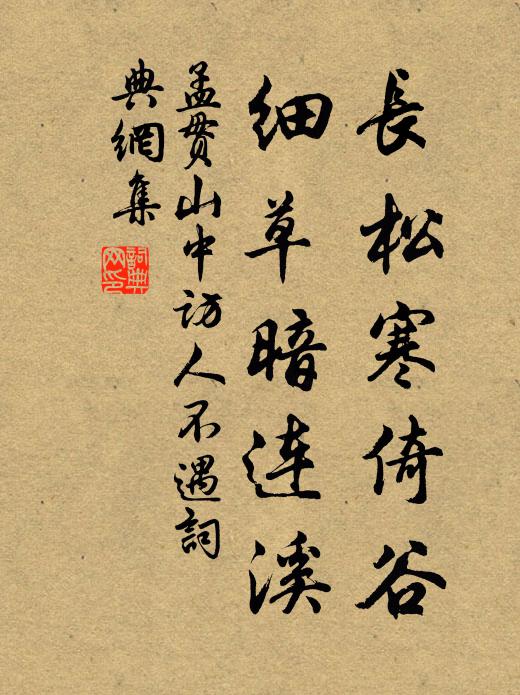 長松寒倚谷
细草暗連溪
孟贯山中访人不遇詞
典網集
詞典
网印